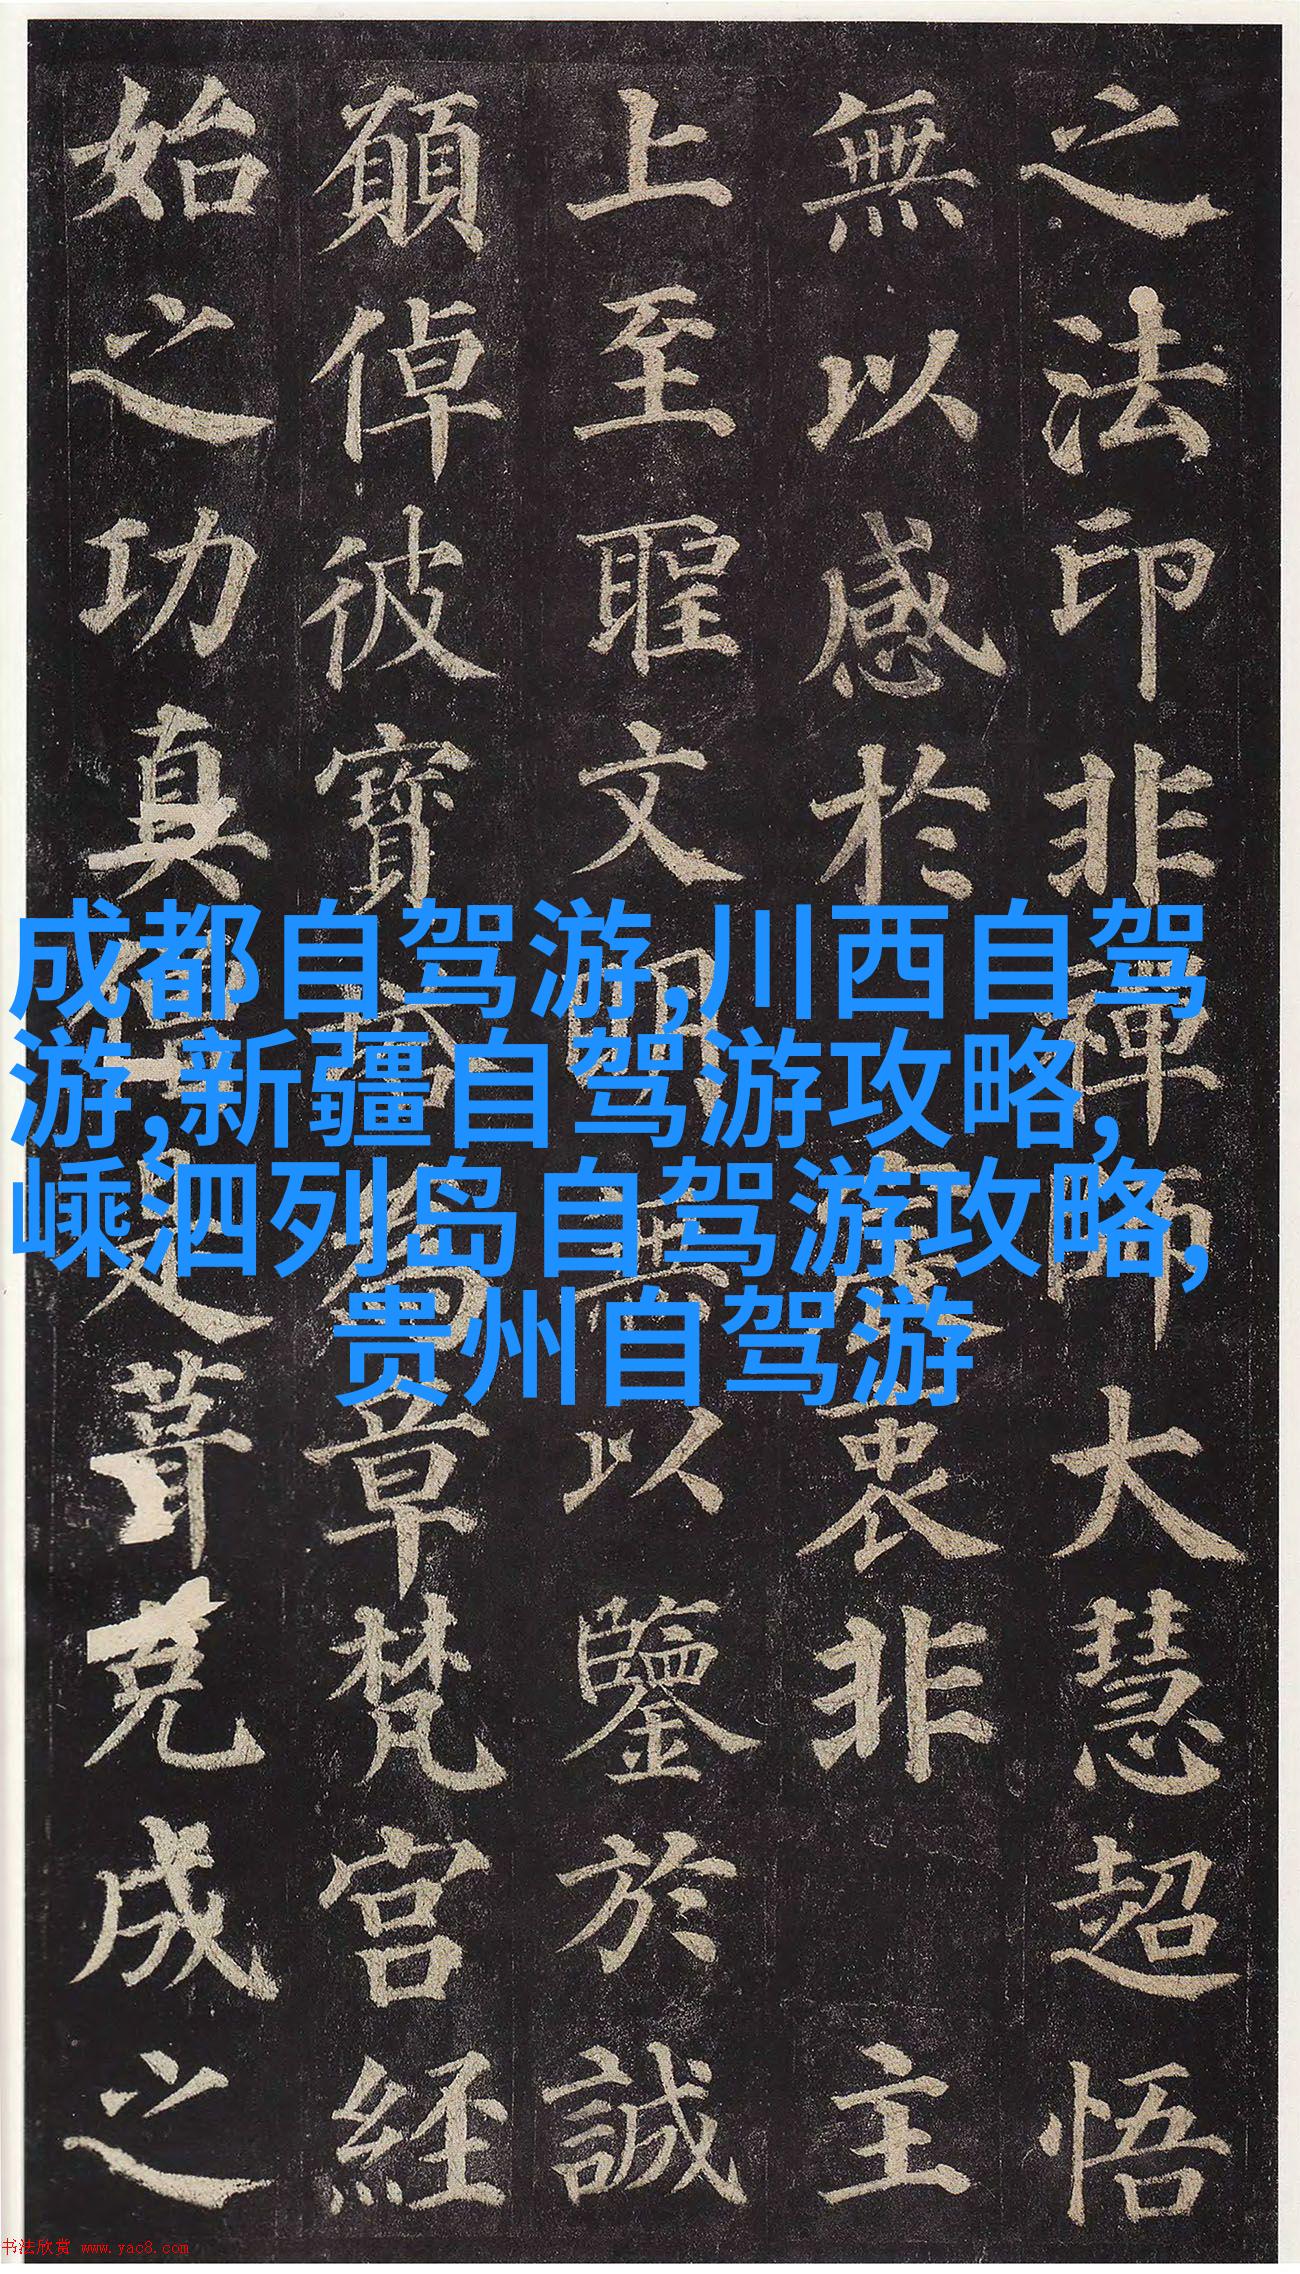 之法印非禪師大慧超悟
無以感於宸衷非主
上至聖文明無以鑒於誠
願倬彼寶塔為章梵宮經
始之功真僧是葺克成之
成都自驾游,川西自驾
游,新疆自驾游攻略,
嵊泗列岛自驾游攻略,
贵州自驾游
书法欣赏 www.yac8.com